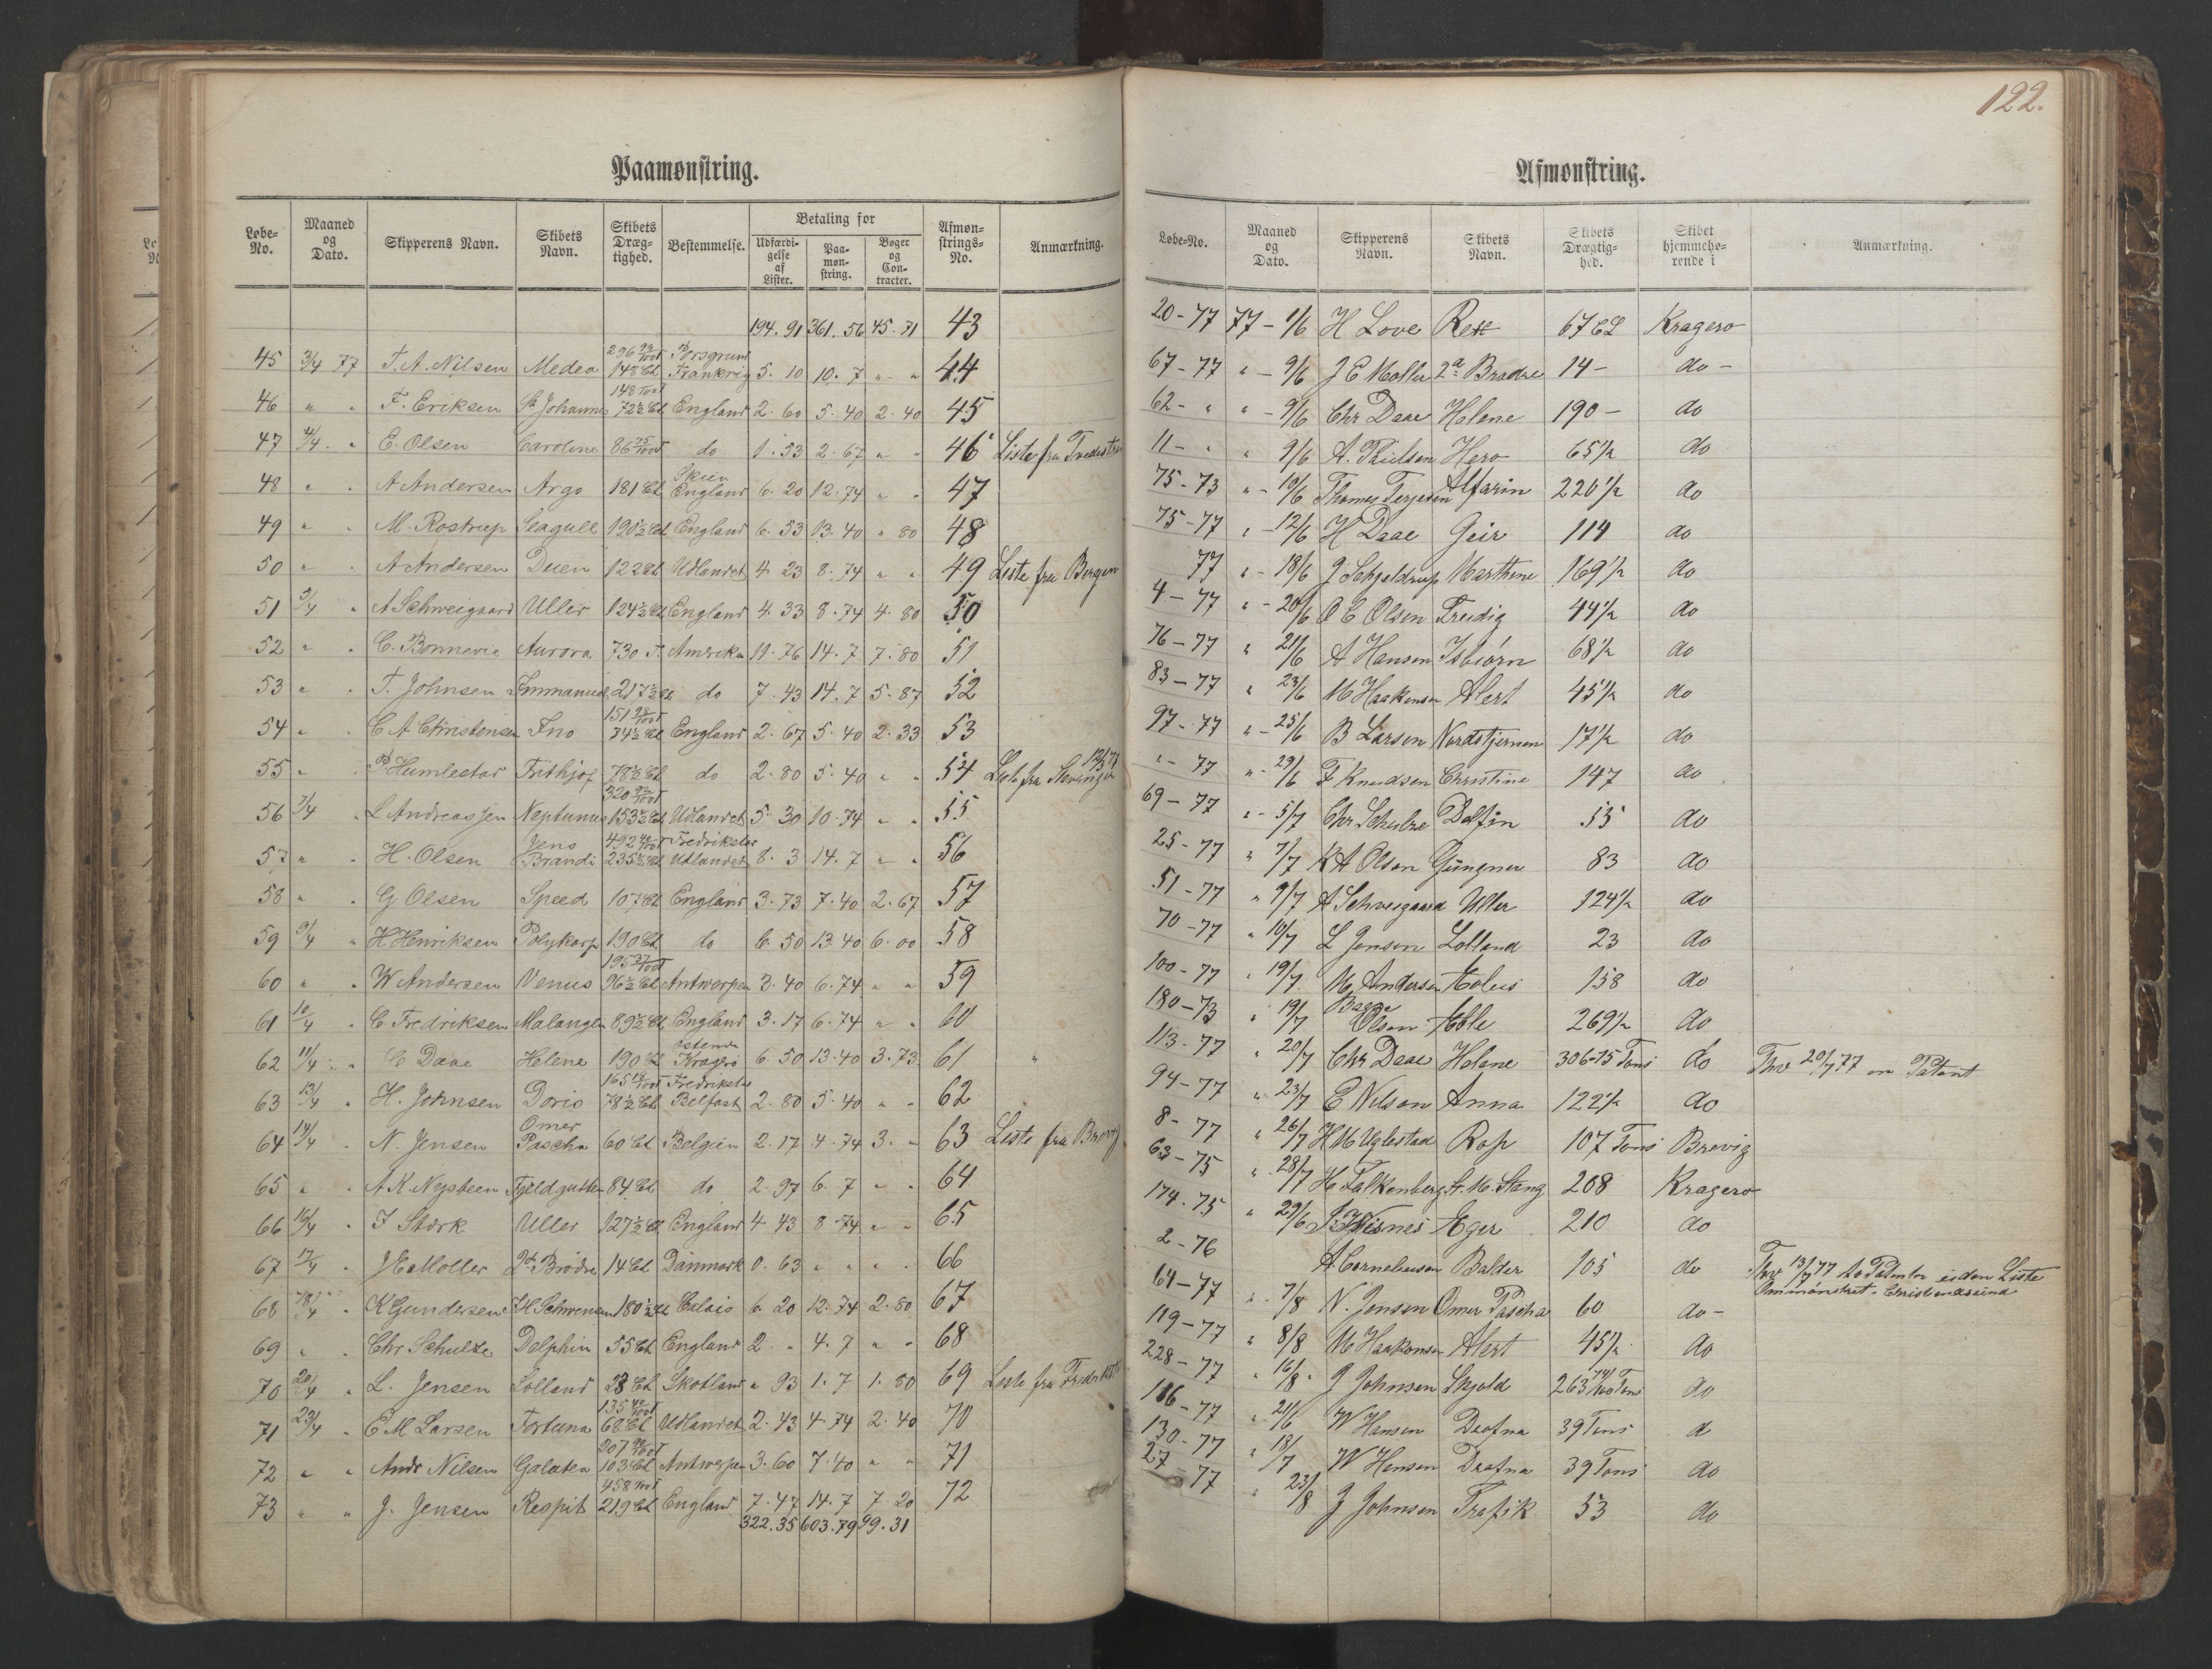 122.
Paamønstring.
Løbe-No. Maaned og Dato. Skipperens Navn. Skibets Navn. Skibets Drægtighed. Bestemmelse. Betaling for Udfærdigelse af Lister. Paamønstring. Bøger og Contracter. Afmønstrings-No. Anmærkning.
194.91 361.56 45.71 43
45 3/4 77 T. A. Nilsen Medea 296 99/100T 148 Cl Porsgrund Frankrig 5. 10 10. 7 " " 44
46 " " F. Eriksen St Johannes 148 T 72½ Cl England 2. 60 5. 40 2. 40 45
47 4/4 " E. Olsen Caroline 86 75/100T do 1. 53 2. 67 " " 46 Liste fra
48 " " A Andersen Argo 181 Cl Skien England 6. 20 12. 74 " " 47
49 " " M. Rostrup Seagull 190½ Cl England 6. 53 13. 40 " 80 48
50 " " A Andersen Duen 122 Cl Udlandet 4. 23 8. 74 " " 49 Liste fra Bergen
51 5/4 " A Schweigaard Uller 124½ Cl England 4. 33 8. 74 4. 80 50
52 " " C. Bonnevie Aurora 730 T. Amerika 11. 76 14. 7 7. 80 51
53 " " T. Johnsen Immanuel 217½ Cl do 7. 43 14. 7 5. 87 52
54 " " C A Christensen Fno 151 98/100T 74½ Cl England 2. 67 5. 40 2. 33 53
55 " " P Humlestad Frithjof 78½ Cl do 2. 80 5. 40 " " 54 Liste fra Stavanger
56 7/4 " L Andreassen Neptunus 320 92/100T 153½ Cl Udlandet 5. 30 10. 74 " " 55
57 " " H. Olsen Jens Brandi 492 T 235½ Cl Fredrikstad Udlandet 8. 3 14. 7 " " 56
58 " " G Olsen Speed 107 Cl England 3. 73 7. 40 2. 67 57
59 9/4 " H Henriksen Polykarp 190 Cl do 6. 50 13. 40 6. 00 58
60 " " W Andersen Venus 195 37/100T 96½ Cl Antwerpen 3. 40 6. 74 " " 59
61 10/4 " C. Fredriksen Malangen 89½ Cl England 3. 17 6. 74 " " 60
62 11/4 " C Daae Helene 190 Cl Ostende Kragerø 6. 50 13. 40 3. 73 61 "
63 13/4 " H. Johnsen Doris 165 T 78½ Cl Fredrikstad Belfast 2. 80 5. 40 " " 62
64 14/4 " N. Jensen Omer Pascha 60 Cl Belgien 2. 17 4. 74 3. " 63 Liste fra Brevig
65 " " A K. Nysteen Fjeldgutten 84 Cl do 2. 97 6. 7 " " 64
66 16/4 " F Stork Uller 127½ Cl England 4. 43 8. 74 " " 65
67 17/4 " J E Møller 2de Brødre 14 Cl Danmark 0. 63 " " " " 66
68 18/4 " K Gundersen H Schwensen 180½ Cl Calais 6. 20 12. 74 2. 80 67
69 " " Chr Schultze Delphin 55 Cl England 2. " 4. 7 " " 68
70 20/4 " L. Jensen Lolland 23 Cl Skotland " 93 1. 7 1. 80 69 Liste fra
71 23/4 " E M Larsen Fortuna 135 T 68 Cl Udlandet 2. 43 4. 74 2. 40 70
72 " " Andr Nilsen Galatea 207 T 103 Cl Antwerpen 3. 60 7. 40 " " 71
73 " " J. Jensen Respit 458 T 219 Cl England 7. 47 14. 7 7. 20 72
322.35 603.79 99.31
Afmønstring.
Løbe-No. Maaned og Dato. Skipperens Navn. Skibets Navn. Skibets Drægtighed. Skibet hjemmehørende i Anmærkning.
20-77 77-1/6 H Love Rex 67 CL Kragerø
67-77 " - 9/6 J E Møller 2de Brødre 14 - do -
62- " " - 9/6 Chr Daae Helene 190 - do
11- " " 9/6 A. Paulsen Hero 65½ do
75-73 " - 10/6 Thomas Terjesen Alfarin 220½ do
75-77 " - 12/6 H Daae Geir 114 do
77 " - 18/6 J Schjeldrup Marthine 169½ do
4-77 " - 20/6 O E Olsen Freidig 44½ do
76-77 " 21/6 A Hansen Isbiørn 68½ do
83-77 " 23/6 M Haakonsen Alert 45½ do
97-77 " - 25/6 B Larsen Nordstjernen 17½ do
" - 77 " - 29/6 F Knudsen Christine 147 do
69-77 " - 5/7 Chr Schulze Delfin 55 do
25-77 " 7/7 K A Olsen Gungner 83 do
51-77 " 9/7 A Schweigaard Uller 124½ do
70-77 " 10/7 L Jensen Lolland 23 do
100-77 " 19/7 M. Andersen Æolus 158 do
180-73 " 19/7 Olsen Æble 269½ do
113-77 " 20/7 Chr Daae Helene 306-75 Tons do Thv 20/7 77 en Patent
94-77 " 23/7 E Nilsen Anna 122½ do
8-77 " 26/7 H M Uglestad Rap 107 Tons Brevig
63-75 " 28/7 H Falkenberg Fr. M. Stang 208 Kragerø
174-75 " 29/6 J Thisnes Æger 210 do
2-76 A Corneliussen Balder 105 do Thv 13/7 77 to Patenter siden Liste Ommønstret. Christianssund
64-77 " 7/8 N. Jensen Omer Pascha 60 do -
119-77 " 8/8 M Haakonsen Alert 45½ do
228-77 " 16/8 J Johnsen Skjold 263 Tons do
186-77 " 21/6 W Hansen Drafna 39 Tons d
130-77 " 18/7 W Hansen Drafna 39 Tons do
27-77 " 23/8 J Johnsen Trafik 53 do